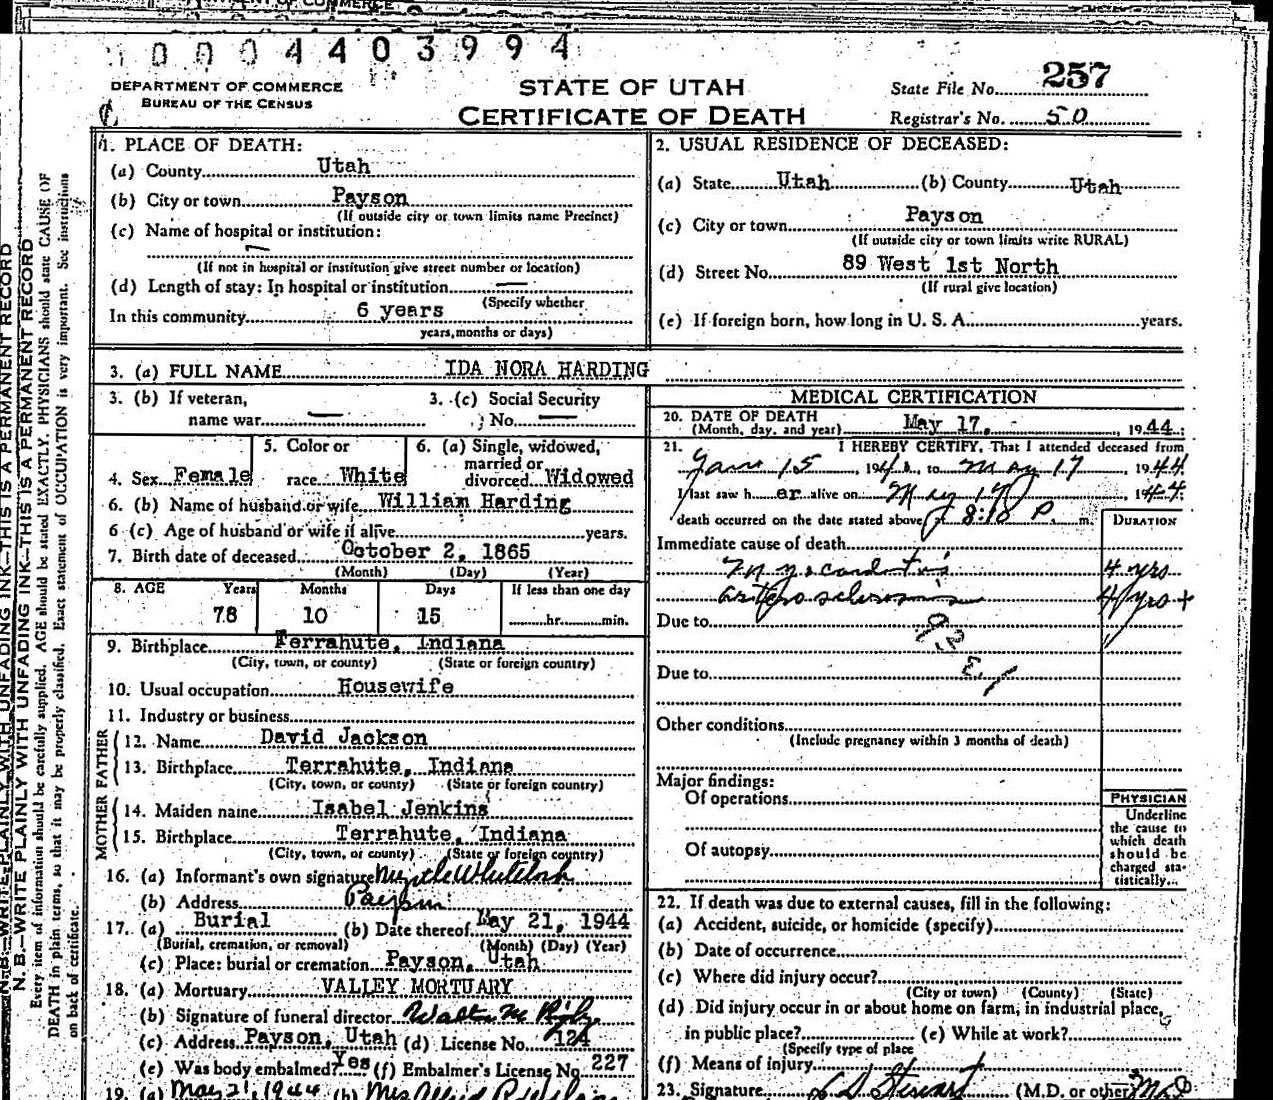 0004403994
DEPARTMENT OF COMMERCE
BUREAU OF THE CENSUS
STATE OF UTAH
CERTIFICATE OF DEATH
State File No. 257
Registrar's No. 50
1. PLACE OF DEATH:
(a) County Utah
(b) City or town Payson
(If outside city or town limits name Precinct)
(c) Name of hospital or institution:
(If not in hospital or institution give street number or location)
(d) Length of stay: In hospital or institution
(Specify whether
In this community 6 years
years, months or days)
2. USUAL RESIDENCE OF DECEASED:
(a) State Utah (b) County Utah
(c) City or town Payson
(If outside city or town limits write RURAL)
(d) Street No. 89 West 1st North
(If rural give location)
(e) If foreign born, how long in U. S. A. years.
3. (a) FULL NAME IDA NORA HARDING
3. (b) If veteran, name war —
3. (c) Social Security No. —
4. Sex Female
5. Color or race White
6. (a) Single, widowed, married or divorced Widowed
6. (b) Name of husband or wife William Harding
6 (c) Age of husband or wife if alive years.
7. Birth date of deceased October 2, 1865
(Month) (Day) (Year)
8. AGE Years Months Days If less than one day
78 10 15 hr. min.
9. Birthplace Terrahute, Indiana
(City, town, or county) (State or foreign country)
10. Usual occupation Housewife
11. Industry or business
FATHER
12. Name David Jackson
13. Birthplace Terrahute, Indiana
(City, town, or county) (State or foreign country)
MOTHER
14. Maiden name Isabel Jenkins
15. Birthplace Terrahute, Indiana
(City, town, or county) (State or foreign country)
16. (a) Informant's own signature Myrtle
(b) Address Payson
17. (a) Burial (b) Date thereof May 21, 1944
(Burial, cremation, or removal) (Month) (Day) (Year)
(c) Place: burial or cremation Payson, Utah
18. (a) Mortuary VALLEY MORTUARY
(b) Signature of funeral director
(c) Address Payson, Utah (d) License No. 124
(e) Was body embalmed? Yes (f) Embalmer's License No. 227
19. (a) May 21, 1944 (b) Mrs
MEDICAL CERTIFICATION
20. DATE OF DEATH
(Month, day, and year) May 17, 1944
21. I HEREBY CERTIFY, That I attended deceased from
Jan 15, 194 , to May 17 1944
I last saw her alive on May 17, 1944
death occurred on the date stated above at 8:10 P. m.
DURATION
Immediate cause of death
Myocarditis 4 yrs
4 yrs +
Due to
Due to
Other conditions
(Include pregnancy within 3 months of death)
Major findings:
Of operations
Of autopsy
PHYSICIAN
Underline
the cause to
which death
should be
charged sta-
tistically.
22. If death was due to external causes, fill in the following:
(a) Accident, suicide, or homicide (specify)
(b) Date of occurrence
(c) Where did injury occur?
(City or town) (County) (State)
(d) Did injury occur in or about home on farm, in industrial place,
in public place? (e) While at work?
(Specify type of place
(f) Means of injury
23. Signature Stewart (M.D. or other)
N. B.—WRITE PLAINLY WITH UNFADING INK—THIS IS A PERMANENT RECORD
Every item of information should be carefully supplied. AGE should be stated EXACTLY. PHYSICIANS should state CAUSE OF
DEATH in plain terms, so that it may be properly classified. Exact statement of OCCUPATION is very important. See instructions
on back of certificate.